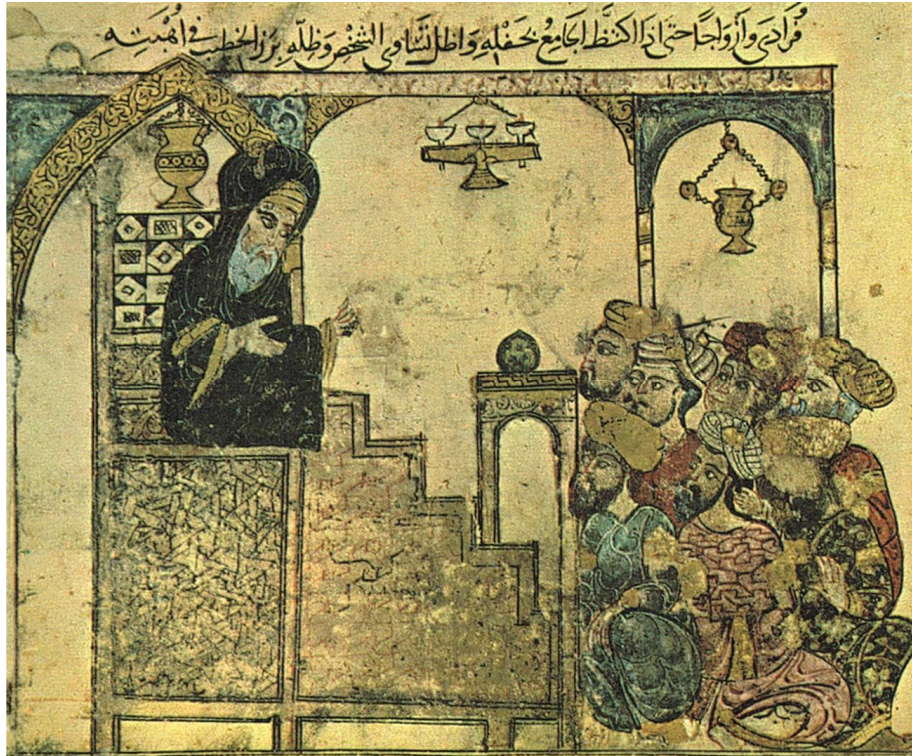 فُرَادَى وَأَزْوَاجًا حَتَّى اذَا اكتَظَّ الجَامعُ بحَفْلِهِ وَاظلَّ تَسَاوِي الشَّخْصِ وَظِلِّهِ بَرَزَ الخَطيب في أُهْبَتِهِ